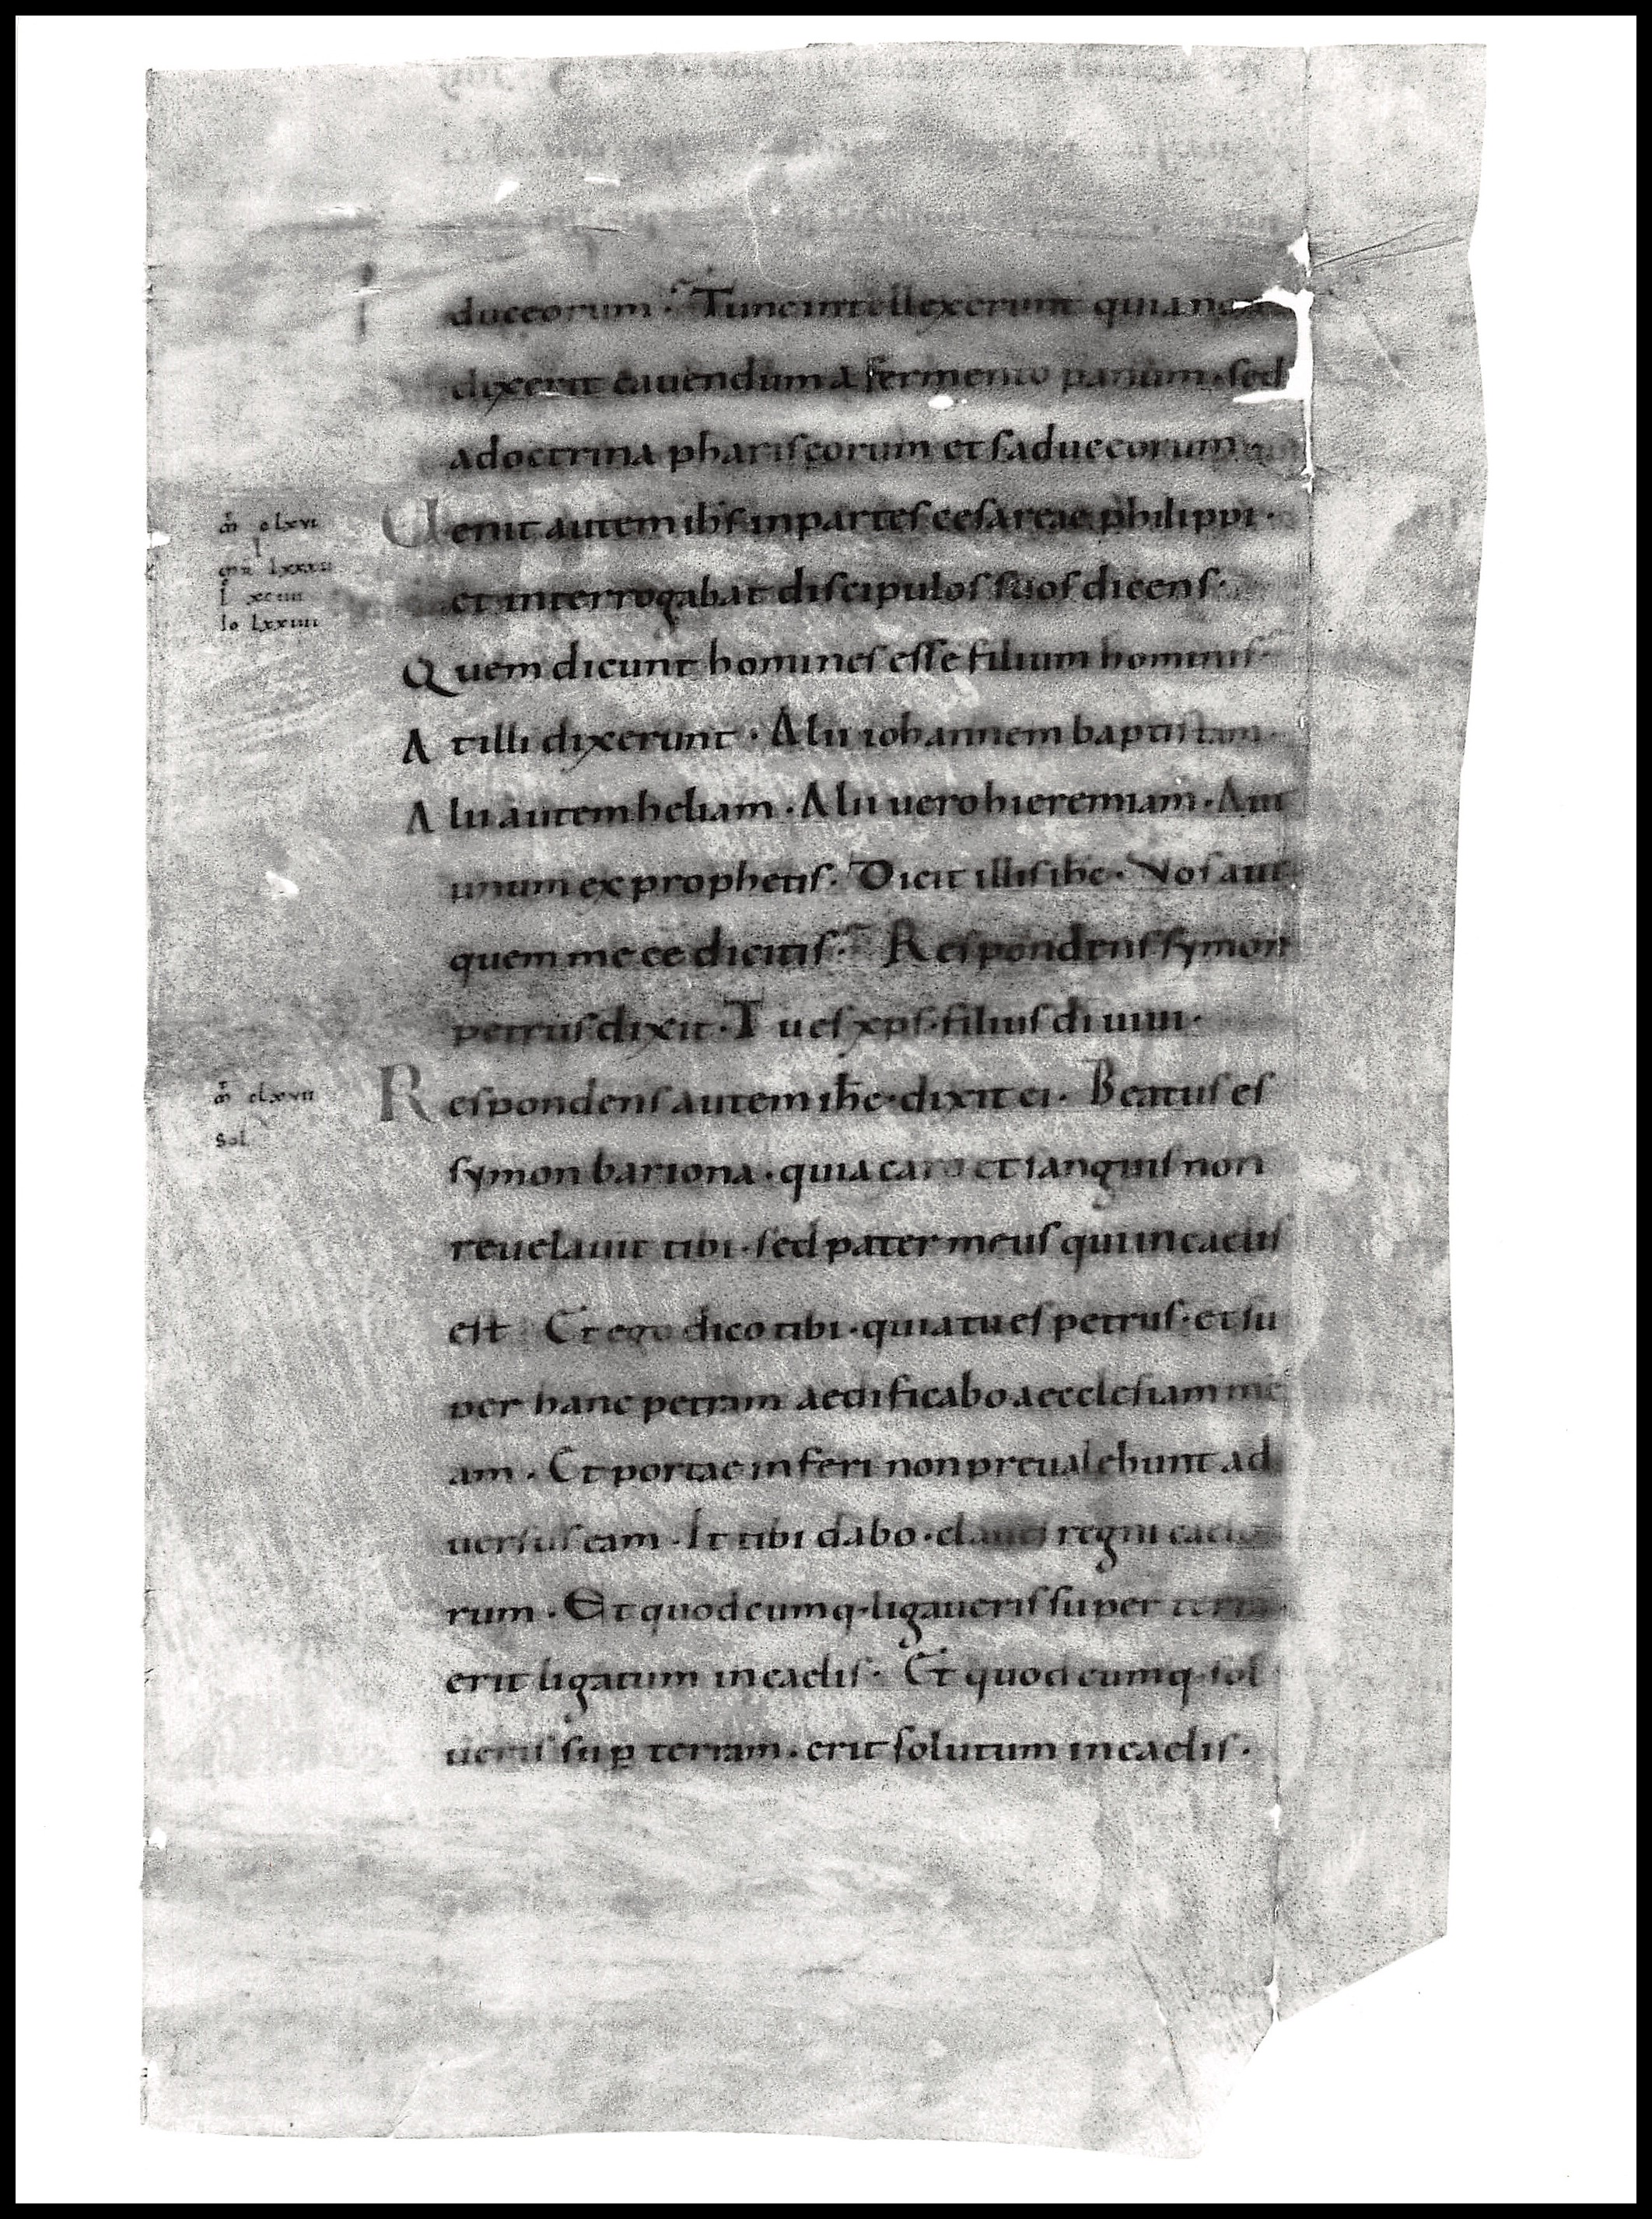 duceorum · Tunc intellexerunt quia non
dixerit cauendum a fermento panum · sed
a doctrina phariseorum et saduceorum
m̄ clxvi
Uenit autem ihs in partes cesareae philippi ·
mr lxxxii
et interrogabat discipulos suos dicens ·
l xciiii
Io lxxiiii
Quem dicunt homines esse filium hominis
At illi dixerunt · Alii iohannem baptistam
Alii autem heliam · Alii uero hieremiam · Aut
unum ex prophetis · Dicit illis ihc · Vos aut
quem me ee dicitis · Respondens symon
petrus dixit · Tu es xps · filius di uiui ·
m̄ clxvii
Respondens autem ihc · dixit ei · Beatus es
sol
symon bariona · quia caro et sanguis non
reuelauit tibi · sed pater meus qui in caelis
est Et ego dico tibi · quia tu es petrus · et su
per hanc petram aedificabo aecclesiam me
am · Et portae inferi non preualebunt ad
uersus eam · Et tibi dabo · claues regni caelo
rum · Et quodcumq · ligaueris super terra
erit ligatum in caelis · Et quodcumq · sol
ueris sup terram · erit solutum in caelis ·